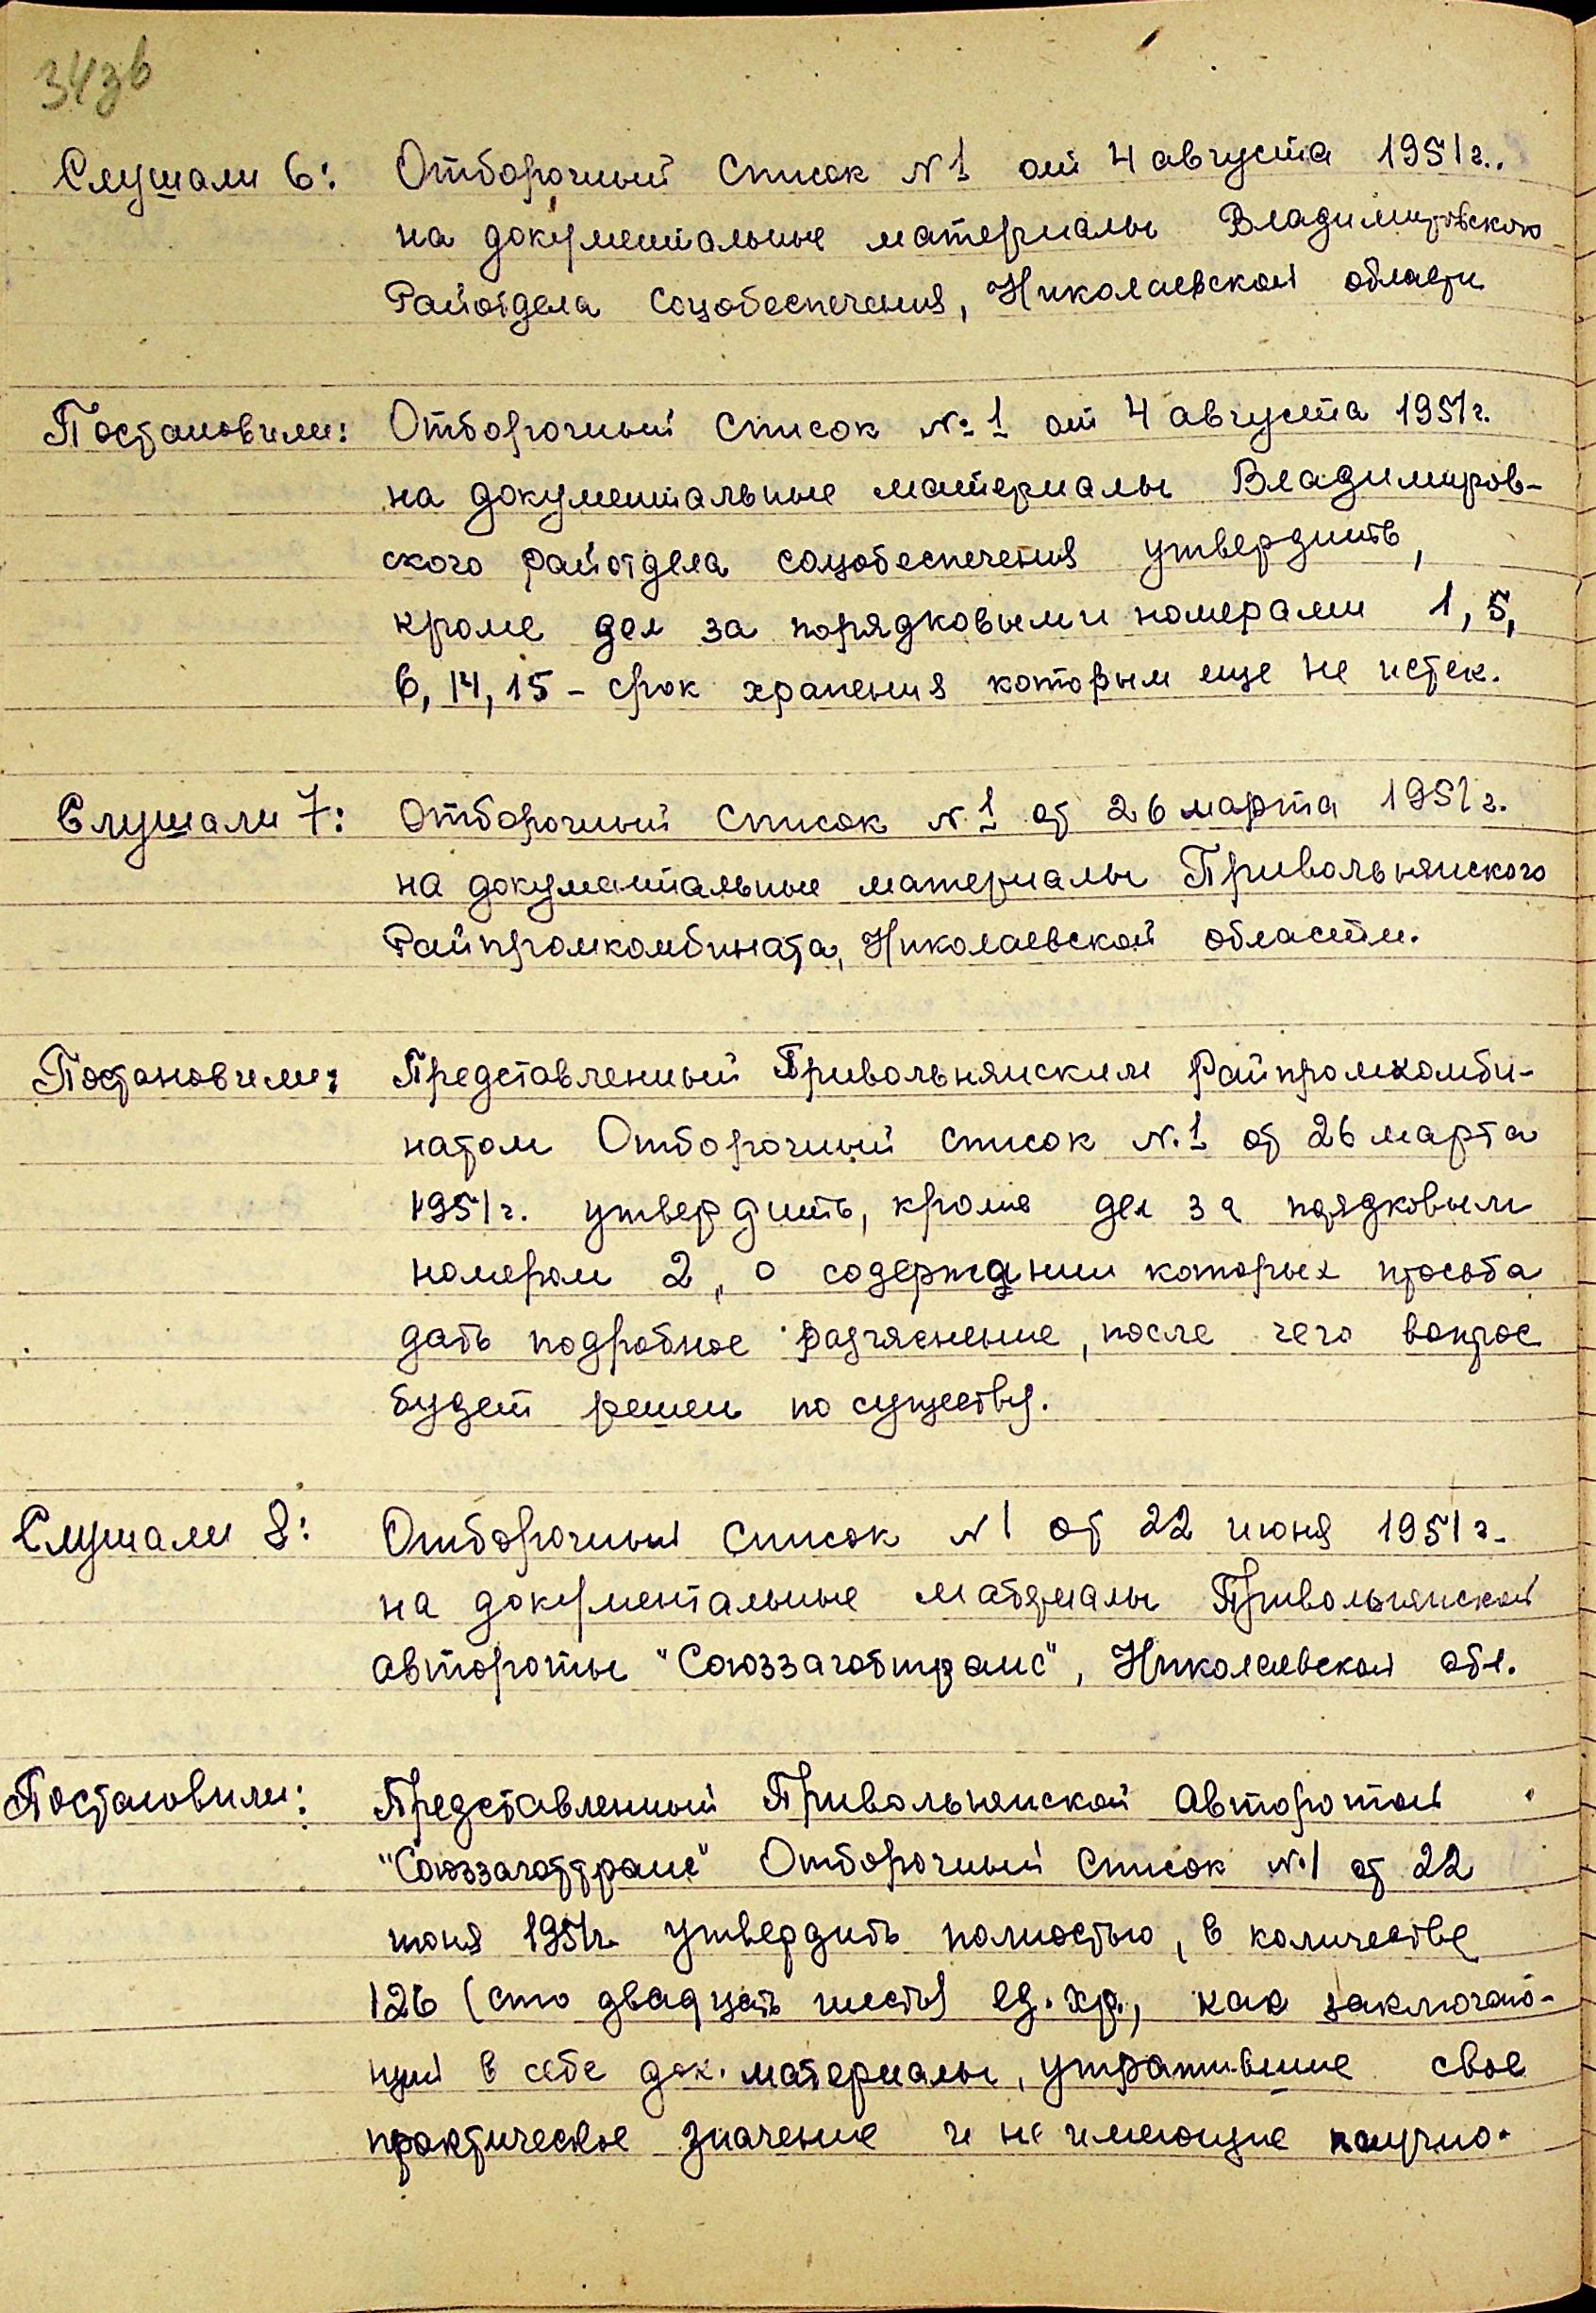 34зв
Слушали 6: Отборочный список №1 от 4 августа 1951г.
на документальные материалы Владимировского
Райотдела Соцобеспечения, Николаевской области
Постановили: Отборочный список №1 от 4 августа 1951г.
на документальные материалы Владимиров-
ского райотдела соцобеспечения утвердить,
кроме дел за порядковыми номерами 1, 5,
6, 14, 15 - срок хранения которым еще не истек.
Слушали 7: Отборочный список №1 от 26 марта 1951г.
на документальные материалы Привольнянского
Райпромкомбината, Николаевской области.
Постановили: Представленный Привольнянским Райпромкомби-
натом Отборочный список №1 от 26 марта
1951г. утвердить, кроме дел за порядковым
номером 2, о содержании которых просьба
дать подробное разъяснение, после чего вопрос
будет решен по существу.
Слушали 8: Отборочный список №1 от 22 июня 1951г.
на документальные материалы Привольнянской
автороты "Союззаготтранс", Николаевской обл.
Постановили: Представленный Привольнянской Авторотой
"Союззаготтранс" Отборочный список №1 от 22
июня 1951г. утвердить полностью, в количестве
126 (сто двадцать шесть) ед. хр., как заключаю-
щий в себе док. материалы, утратившие свое
практическое значение и не имеющие научно-